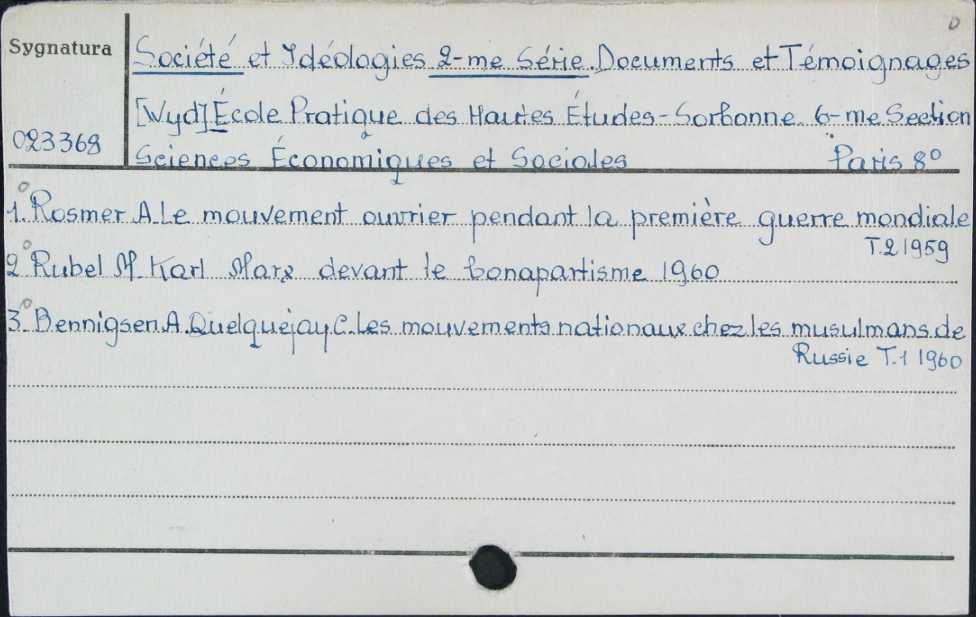 D
Sygnatura
Société et Idéologies 2-me Série. Documents et Témoignages
[Wyd] École Pratique des Hautes Études - Sorbonne. 6-me Section
023368
Sciences Économiques et Sociales Paris 8°
1.° Rosmer A. Le mouvement ouvrier pendant la première guerre mondiale
T.2 1959
2.° Rubel M. Karl Marx devant le bonapartisme 1960
3.° Bennigsen A. Quelquejay C. Les mouvements nationaux chez les musulmans de
Russie T.1 1960